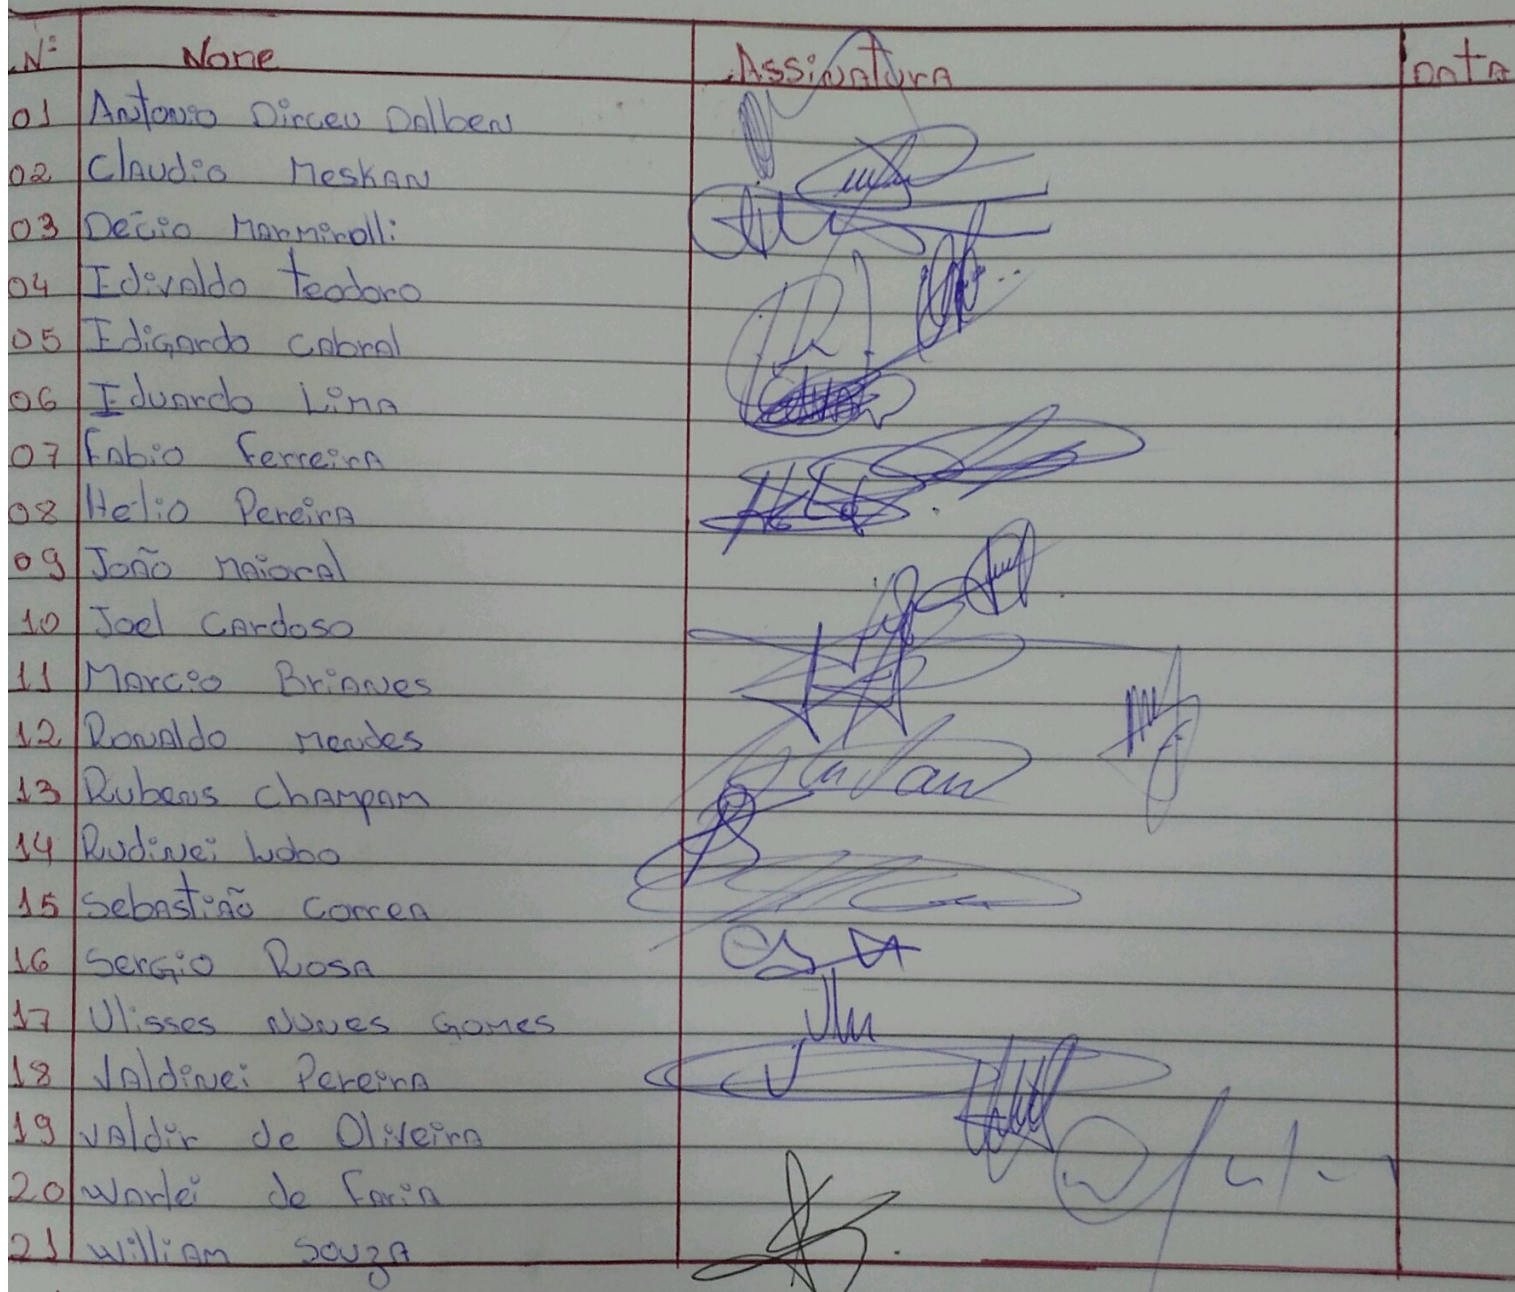 Nº Nome Assinatura Data
01 Antonio Dirceu Dalben
02 Claudio Meskan
03 Décio Marmirolli
04 Edivaldo Teodoro
05 Edigardo Cabral
06 Eduardo Lima
07 Fabio Ferreira
08 Hélio Pereira
09 João Maioral
10 Joel Cardoso
11 Marcio Brianes
12 Ronaldo Mendes
13 Rubens Champam
14 Rudinei Lobo
15 Sebastião Correa
16 Sergio Rosa
17 Ulisses Nunes Gomes
18 Valdinei Pereira
19 Valdir de Oliveira
20 Warlei de Faria
21 William Souza